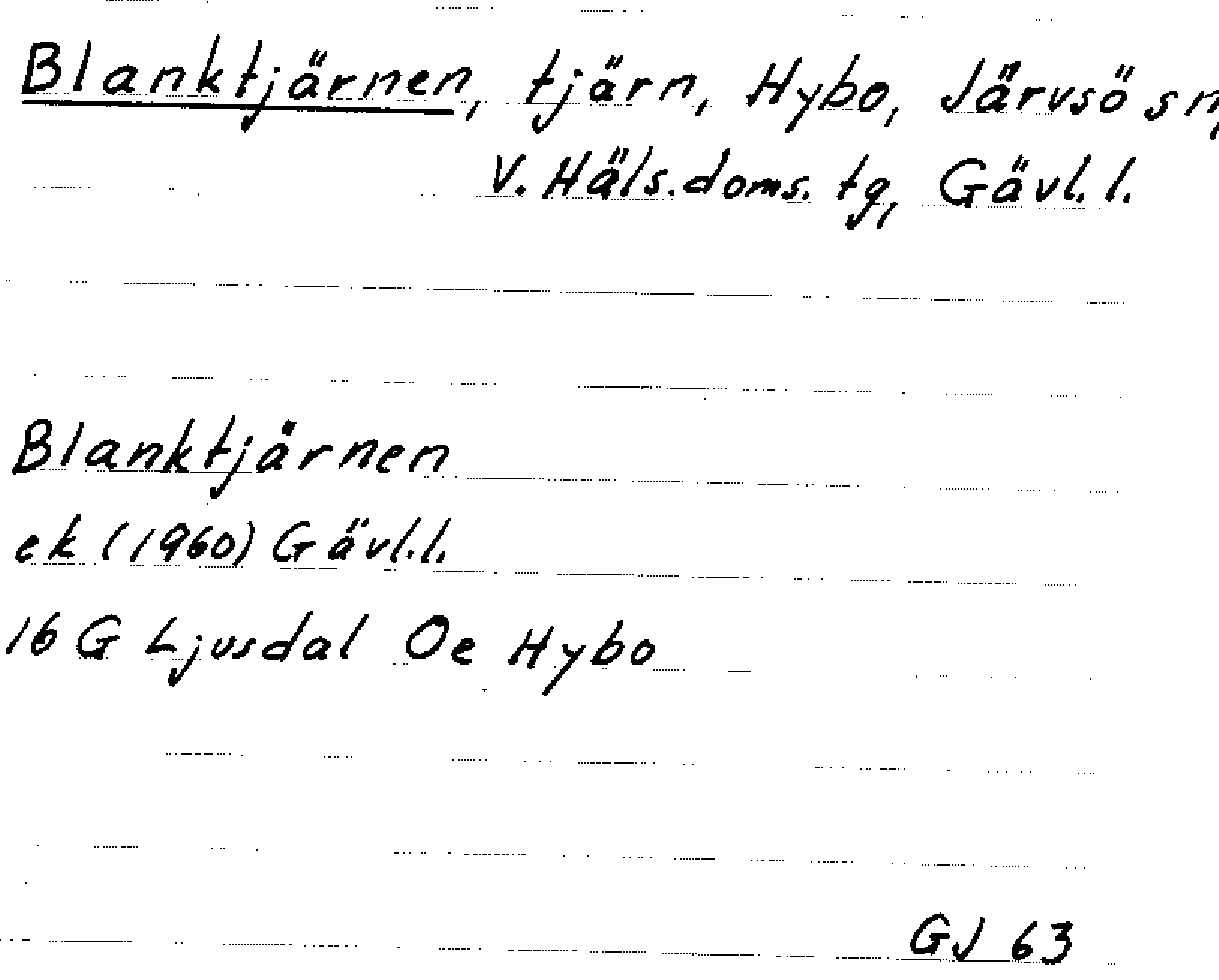 Blanktjärnen, tjärn, Hybo, Järvsö sn,
V. Häls. doms. tg, Gävl. l.
Blanktjärnen
ek (1960) Gävl.l.
16 G Ljusdal Oe Hybo
GJ 63